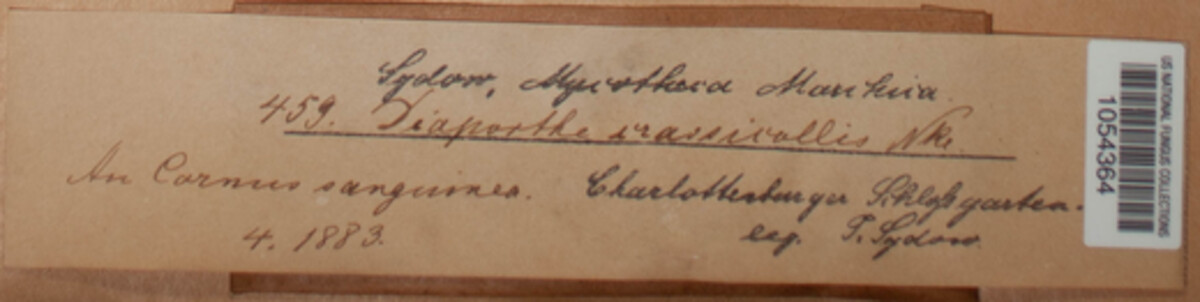 Sydow, Mycotheca Marchica.
459. Diaporthe crassicollis Nke.
An Cornus sanguinea. Charlottenburger Schloßgarten.
4. 1883. leg. P. Sydow.
US NATIONAL FUNGUS COLLECTIONS
1054364